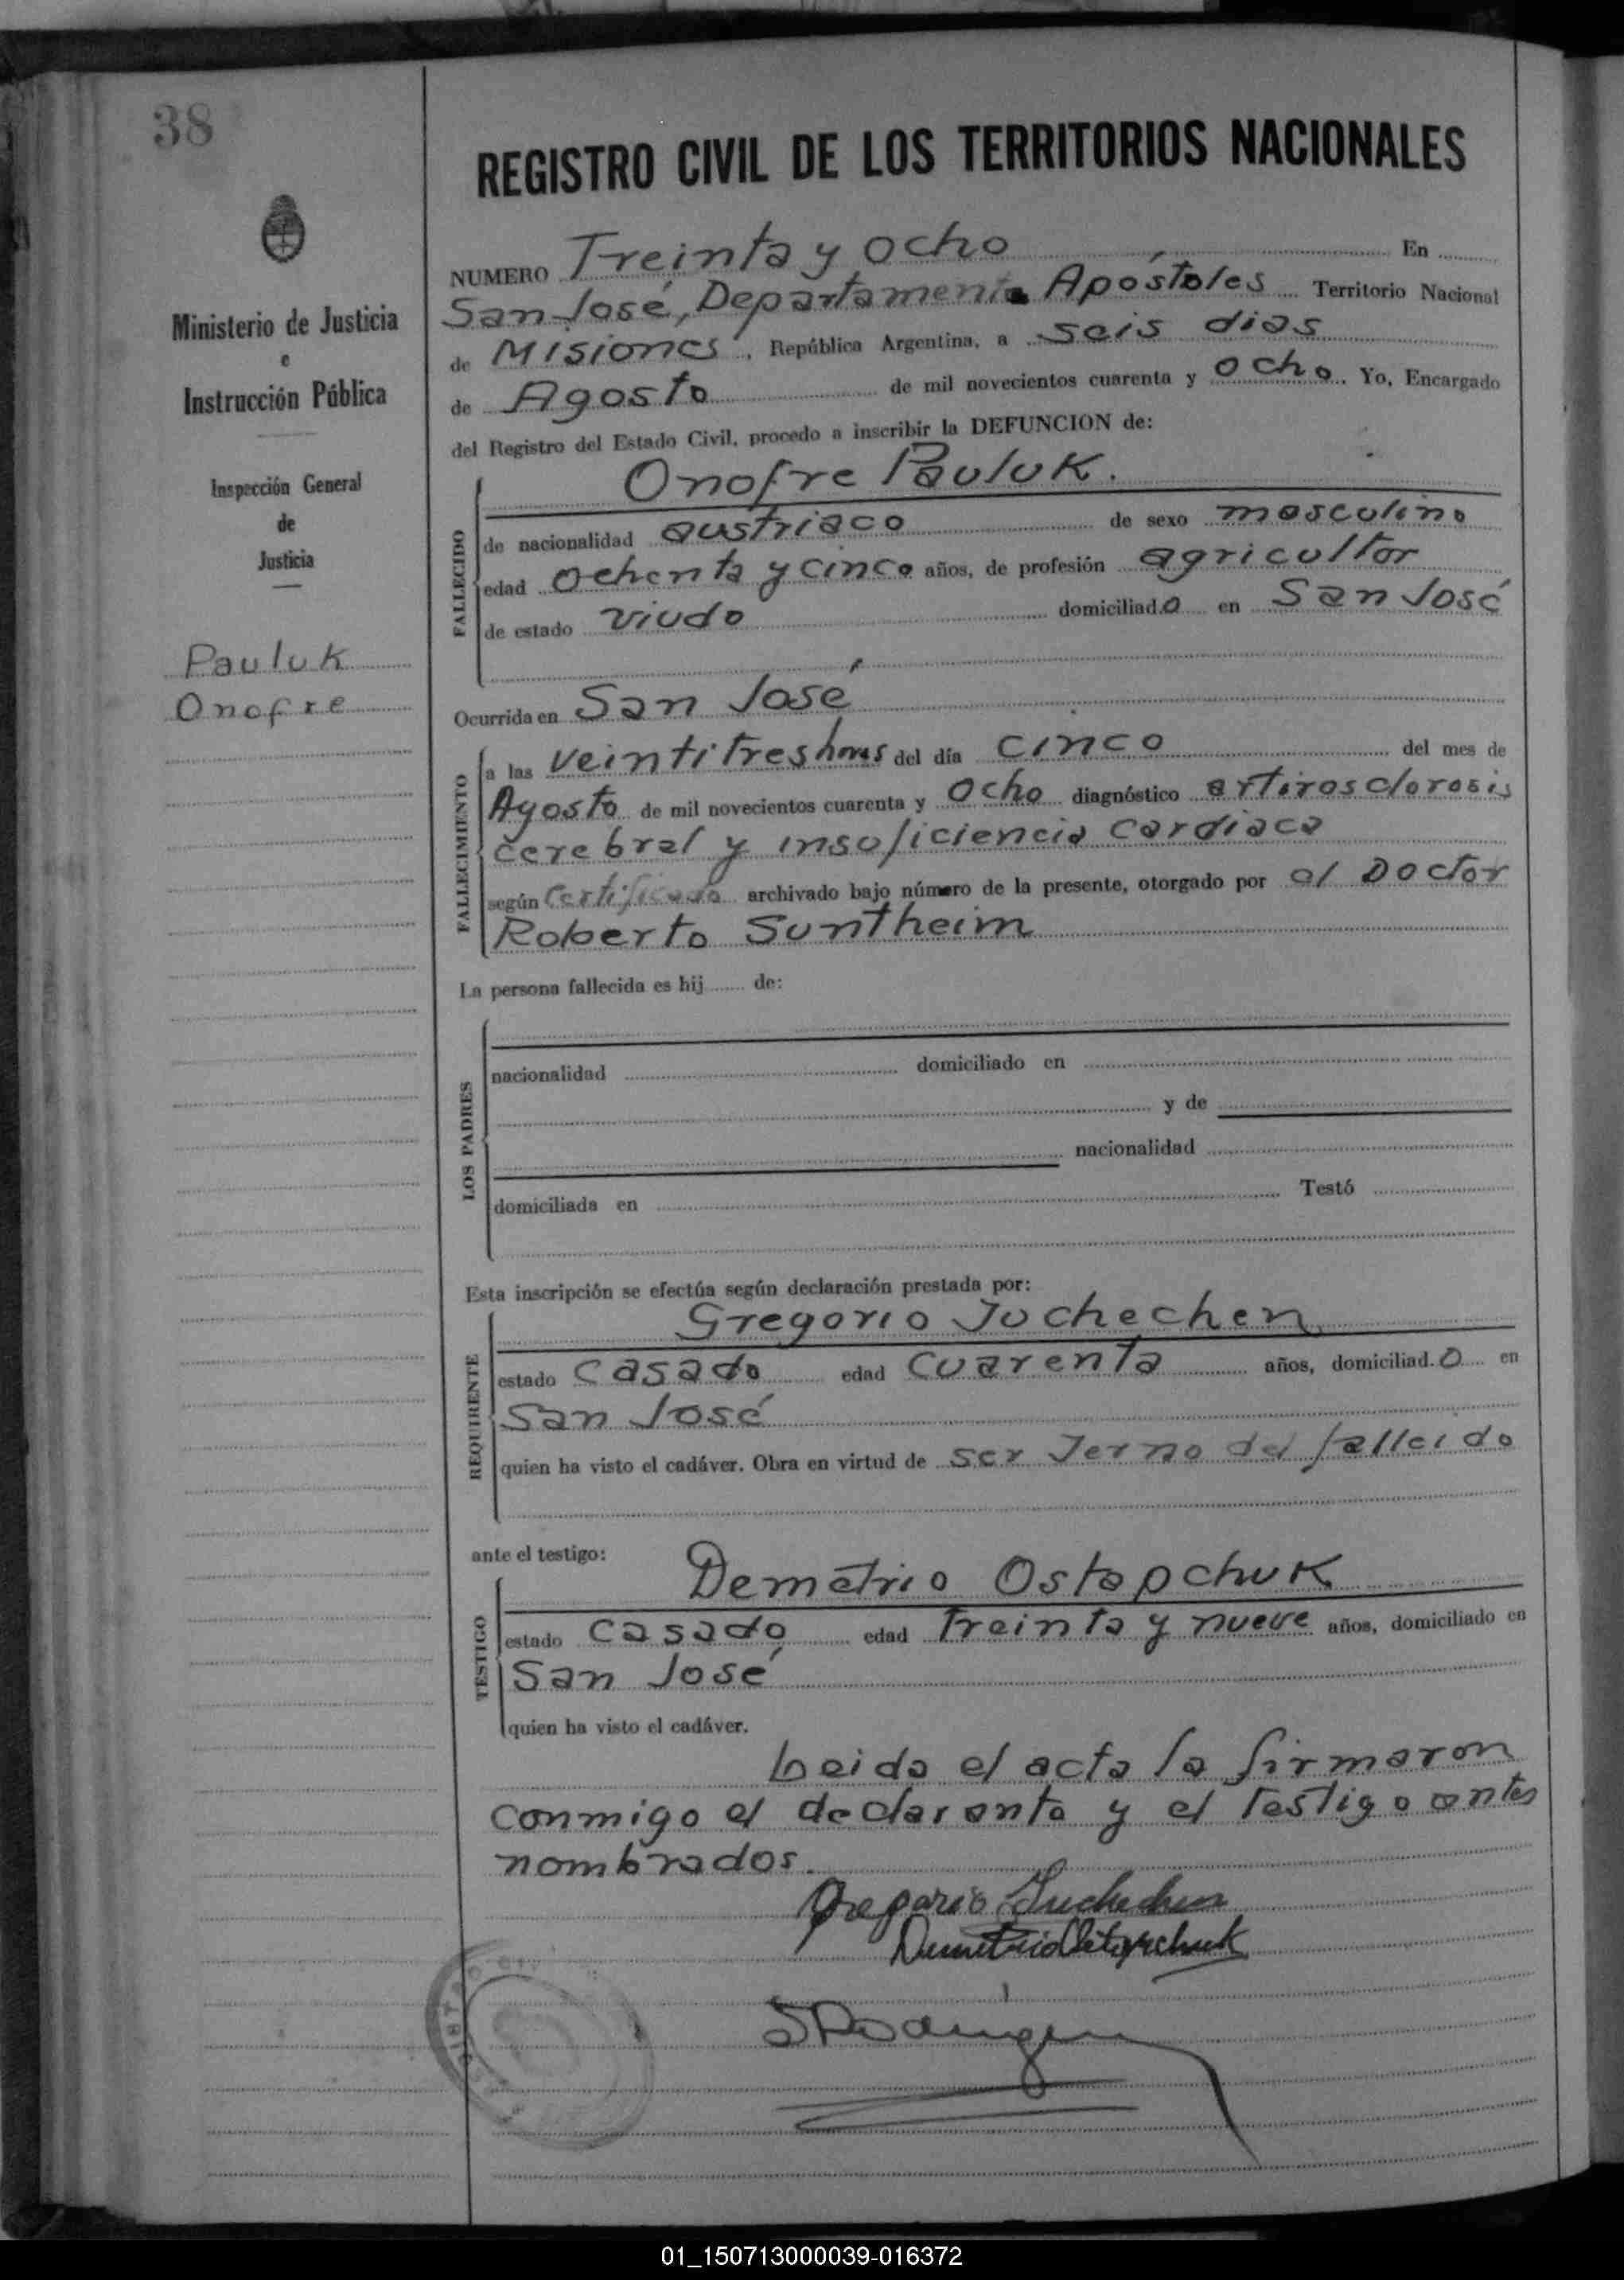 38
REGISTRO CIVIL DE LOS TERRITORIOS NACIONALES
Ministerio de Justicia
e
Instrucción Pública
Inspección General
de
Justicia
Pauluk
Onofre
NUMERO Treinta y ocho En
San José, Departamento Apóstoles Territorio Nacional
de Misiones, República Argentina, a seis dias
de Agosto de mil novecientos cuarenta y ocho. Yo, Encargado
del Registro del Estado Civil, procedo a inscribir la DEFUNCION de:
FALLECIDO
Onofre Pauluk.
de nacionalidad austriaco de sexo masculino
edad ochenta y cinco años, de profesión agricultor
de estado viudo domiciliado en San José
Ocurrida en San José
FALLECIMIENTO
a las veintitres horas del día cinco del mes de
Agosto de mil novecientos cuarenta y ocho diagnóstico artirosclorosis
cerebral y insoficiencia cardiaca
según Certificado archivado bajo número de la presente, otorgado por el Doctor
Roberto Suntheim
La persona fallecida es hij de:
LOS PADRES
nacionalidad domiciliado en
y de
nacionalidad
domiciliada en Testó
Esta inscripción se efectúa según declaración prestada por:
REQUIRENTE
Gregorio Juchechen
estado casado edad cuarenta años, domiciliado en
San José
quien ha visto el cadáver. Obra en virtud de ser Jerno del falleido
ante el testigo:
TESTIGO
Demetrio Ostapchuk
estado casado edad treinta y nueve años, domiciliado en
San José
quien ha visto el cadáver.
Leida el acta la firmaron
conmigo el declarante y el testigo antes
nombrados.
Gregorio Juchechen
Demetrio Ostapchuk
01_150713000039-016372